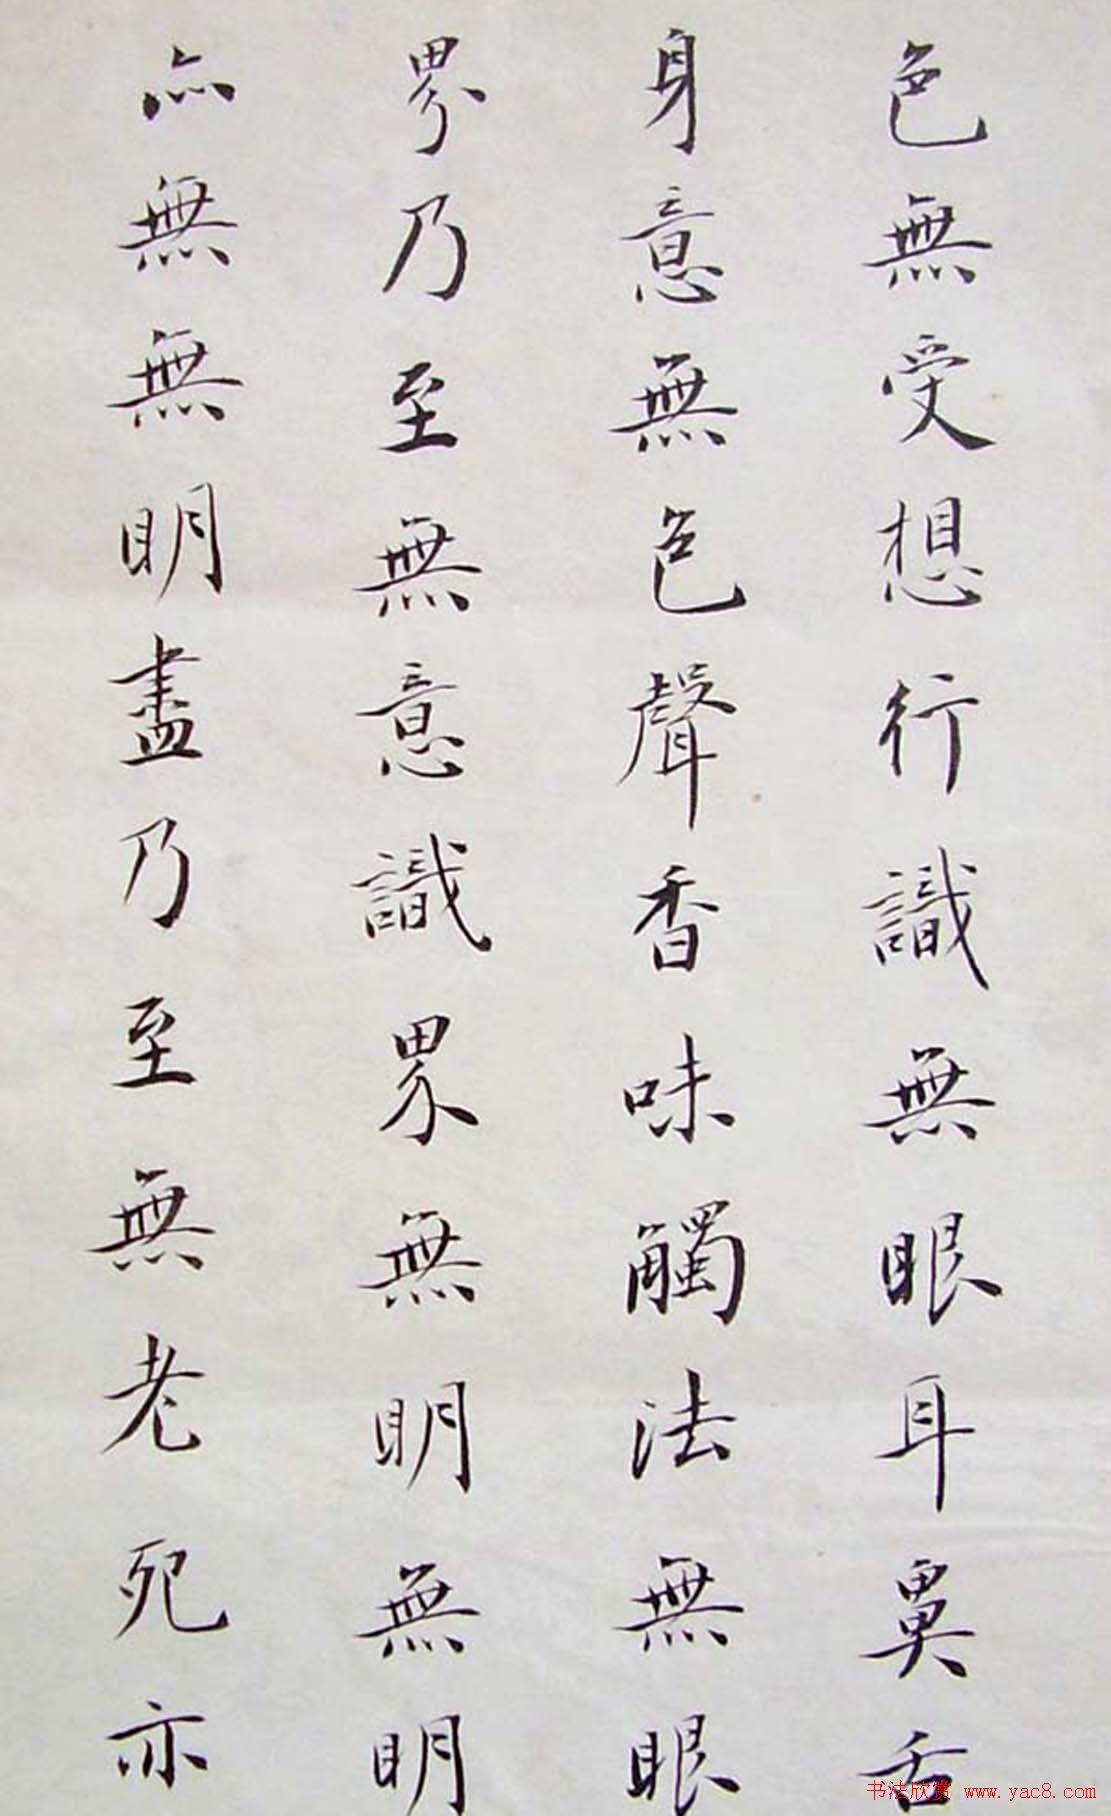 色無受想行識無眼耳鼻舌
身意無色聲香味觸法無眼
界乃至無意識界無明無明
亦無無明盡乃至無老死亦
书法欣赏 www.yac8.com